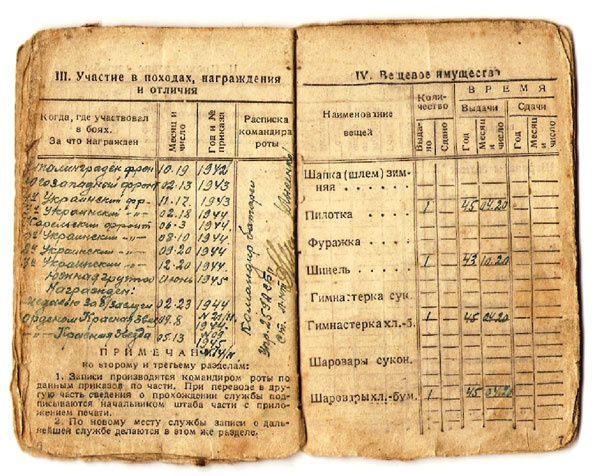 III. Участие в походах, награждения
и отличия
Когда, где участвовал
в боях.
За что награжден
Месяц и
число
Год и №
приказа
Расписка
командира
роты
фрон 10.19 1942
Югозападный фронт 02.13 1943
Украинский фр. 11.17 1943
Украинский -„- 02.18 1944
Карельский фронт 06.3 1944
Украинский -„- 08.10 1944
Украинский -„- 09.20 1944
Украинский -„- 12.20 1944
Южная группа июнь 1945
Награжден:
медалью За б/заслуги 02.23 1944
орденом Красная Звез 09.8 1944
-„- Красная Звезда 05.13 1945
Командир батареи
ПРИМЕЧАНИЯ
ко второму и третьему разделам:
1. Записи производятся командиром роты по
данным приказов по части. При переводе в дру-
гую часть сведения о прохождении службы под-
писываются начальником штаба части с прило-
жением печати.
2. По новому месту службы записи о даль-
нейшей службе делаются в этом же разделе.
IV. Вещевое имущество
Наименование
вещей
Количество
Выдано
Сдано
ВРЕМЯ
Выдачи
Сдачи
Год
Месяц
и число
Год
Месяц
и число
Шапка (шлем) зим-
няя . . . .
Пилотка . . . . 1 45 04.20
Фуражка . . . .
Шинель . . . . 1 43 10.20
Гимнастерка сук.
Гимнастерка хл.-б. 1 45 04.20
Шаровары сукон.
Шаровары хл.-бум. 1 45 04.20